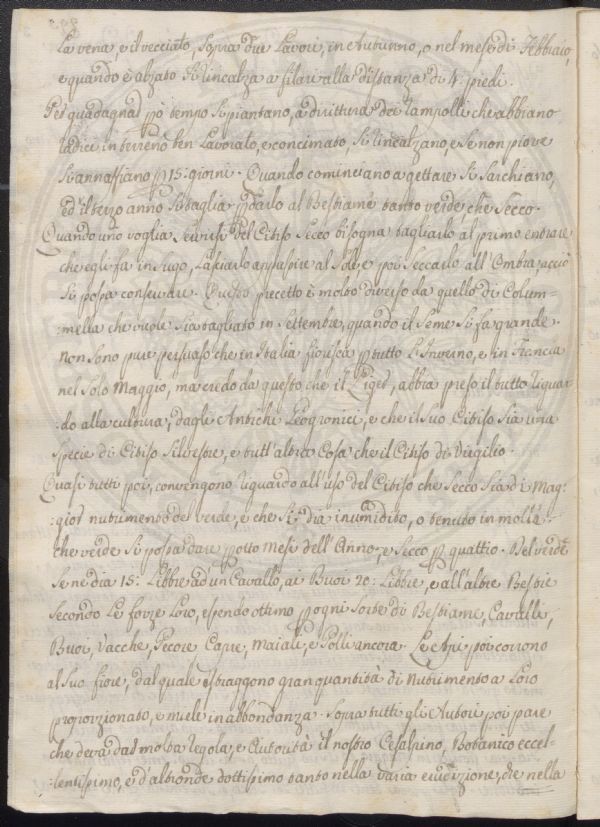 La vena, e il vecciato, sopra due Lavori, in Autunno, o nel mese di Febbraio,
e quando è alzato si rincalza a filari alla distanza di 4: piedi.
Per guadagnar però tempo si piantano, a dirittura dei rampolli che abbiano
radici in terreno ben Lavorato, e concimato, si rincalzano, e se non piove
si annaffiano p 15: giorni. Quando cominciano a gettare si sarchiano,
ed il terzo anno si taglia p darlo al Bestiame tanto verde, che secco.
Quando uno voglia servirsi del Citiso secco bisogna tagliarlo al primo entrare
che egli fa in sugo, Lasciarlo appassire al sole e poi seccarlo all'Ombra, acciò
si possa conservare. Questo precetto è molto diverso da quello di Colum=
:mella che vuole sia tagliato in Settembre, quando il seme si fa grande.
Non sono pure persuaso che in Italia fiorisca p tutto L'Inverno, e in Francia
nel solo Maggio, ma credo da questo che il Liger, abbia preso il tutto riguar
:do alla cultura, dagli Antichi Geogronici, e che il suo Citiso sia una
specie di Citiso Silvestre, e tutt'altra Cosa che il Citiso di Virgilio.
Quasi tutti poi, convengono riguardo all'uso del Citiso che secco sia di Mag:
:gior nutrimento del verde, e che si dia inumidito, o tenuto in molle.
che verde si possa dare p otto Mesi dell'Anno, e secco p quattro. Del verde
se ne dia 15: Libbre ad un Cavallo, ai Buoi 20: Libbre, e all'altre Bestie
secondo Le forze Loro, essendo ottimo p ogni sorte di Bestiame, Cavalli,
Buoi, Vacche, Pecore Capre, Maiali, e Polli ancora. Le Api poi corrono
al suo fiore, dal quale estraggono gran quantità di nutrimento a Loro
proporzionato, e miele in abbondanza. Sopra tutti gli Autori poi pare
che deva dar molta regola, e Autorità il nostro Cesalpino, Botanico eccel-
:lentissimo, e d'altronde dottissimo tanto nella varia erudizione, che nella